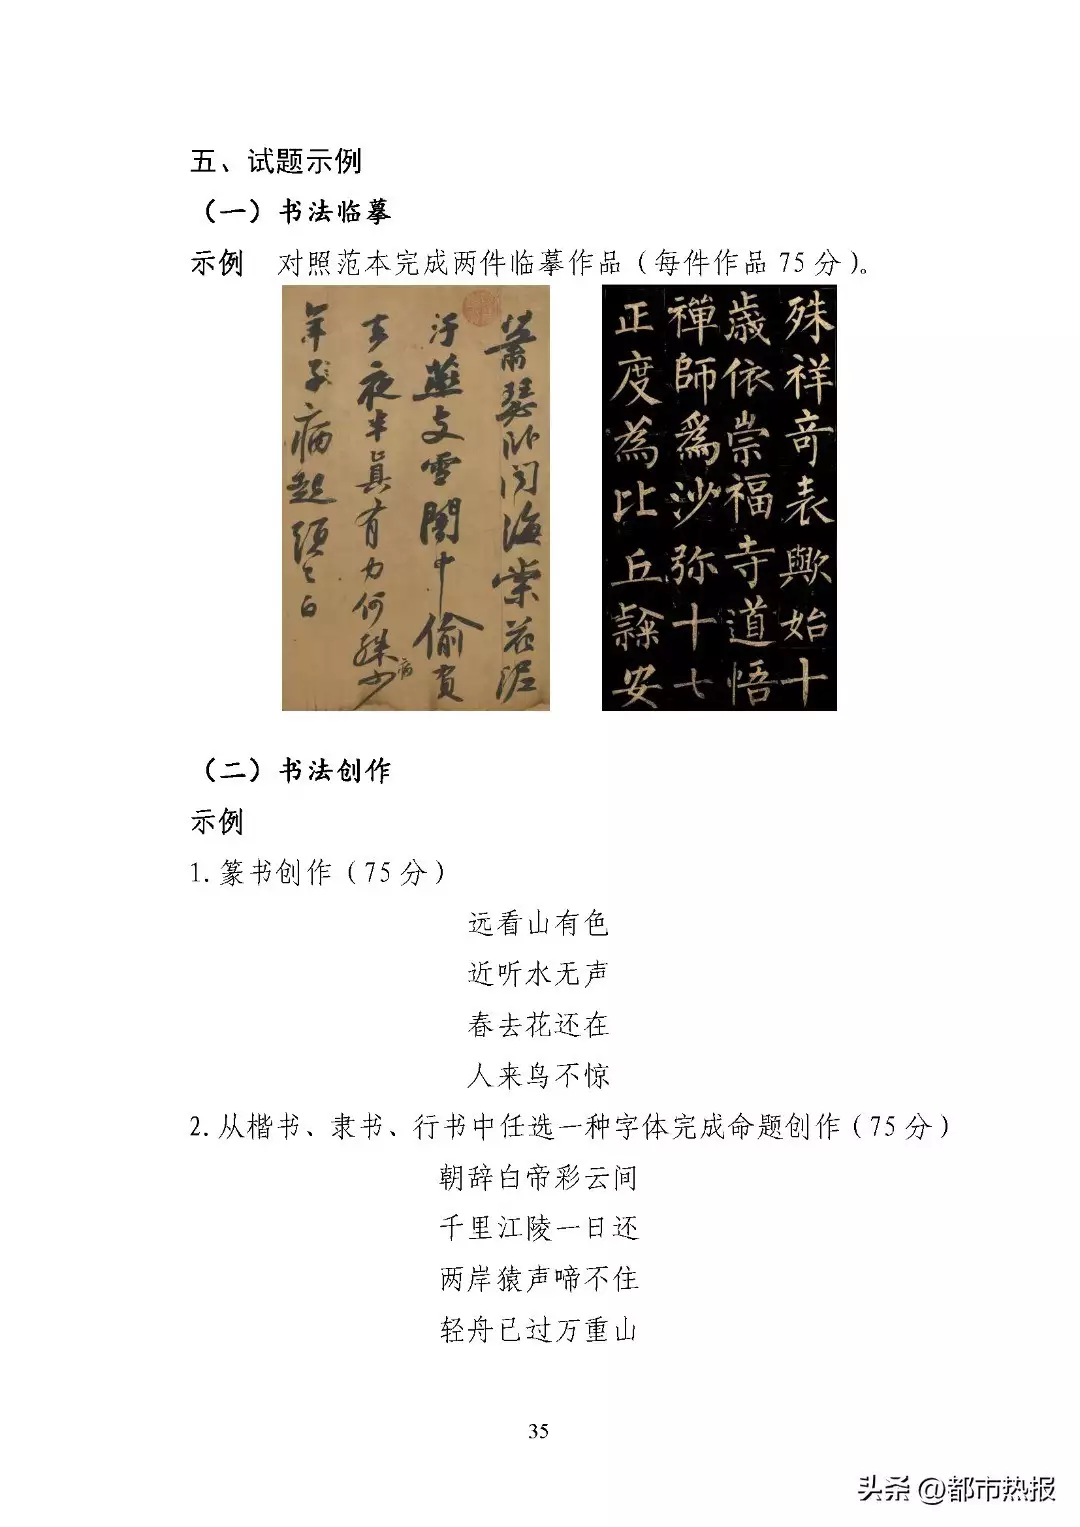 五、试题示例
（一）书法临摹
示例 对照范本完成两件临摹作品（每件作品75分）。
蕭瑟卧聞海棠花泥
汙燕支雪闇中偷負
去夜半真有力何殊少
病
年子病起頭已白
殊祥奇表歟始十
歲依崇福寺道悟
禪師爲沙弥十七
正度為比丘隸安
（二）书法创作
示例
1.篆书创作（75分）
远看山有色
近听水无声
春去花还在
人来鸟不惊
2.从楷书、隶书、行书中任选一种字体完成命题创作（75分）
朝辞白帝彩云间
千里江陵一日还
两岸猿声啼不住
轻舟已过万重山
35
头条 @都市热报